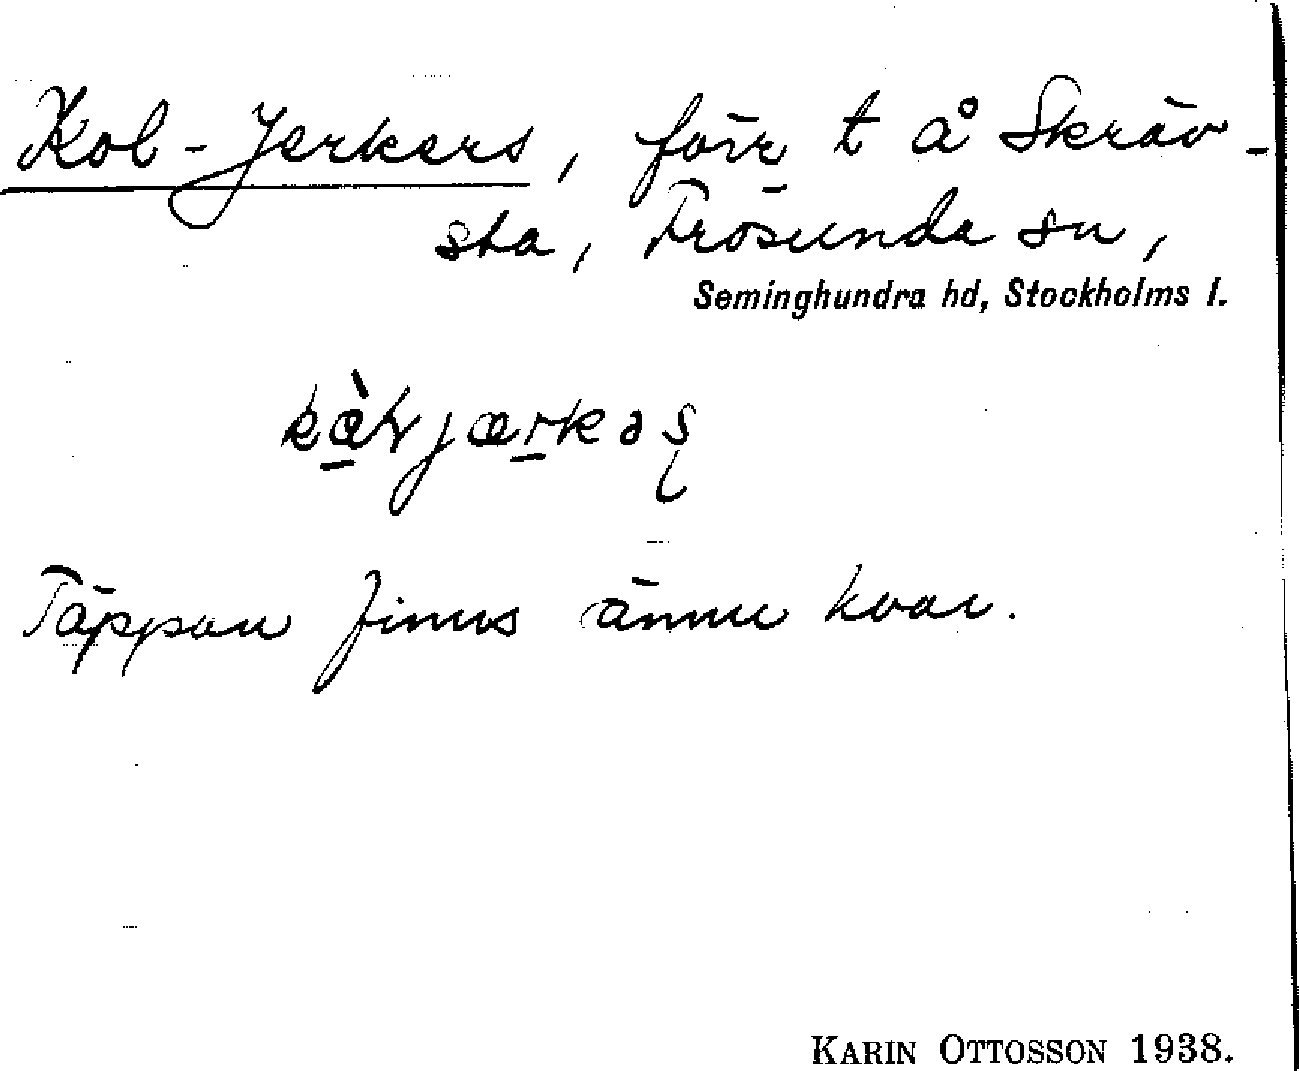 Kol-Jerkers, förr t å Skräv-
sta, Frösunda sn,
Seminghundra hd, Stockholms l.
Täppan finns ännu kvar.
KARIN OTTOSSON 1938.